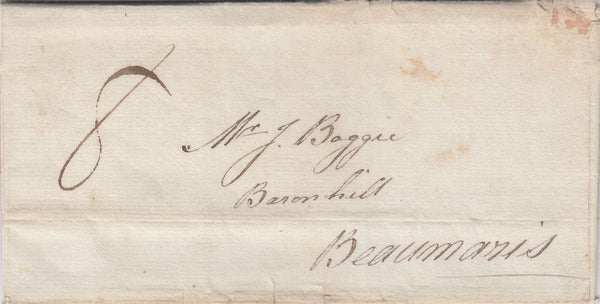 8
Mr J. Baggie
Baronhill
Beaumaris